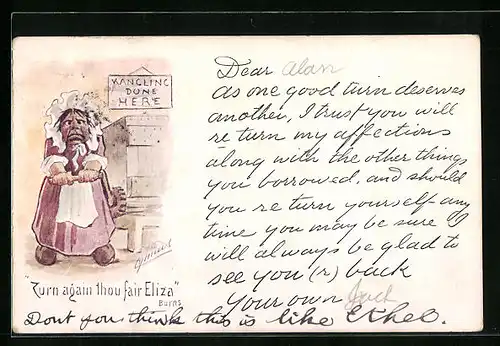 MANGLING
DONE
HERE
"Turn again thou fair Eliza"
Burns
Dear Alan
As one good turn deserves
another, I trust you will
re turn my affections
along with the other things
you borrowed, and should
you re turn yourself any
time you may be sure I
will always be glad to
see you(r) back
Your own Jack
Dont you think this is like Ethel.